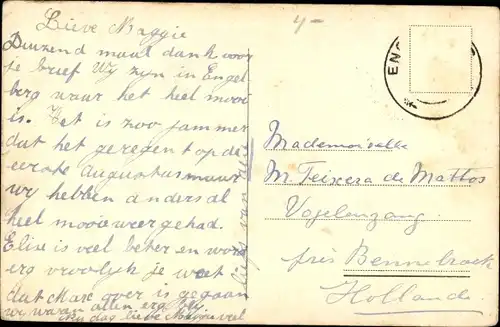 4-
Lieve Maggie
Duizend maal dank voor
je brief Wy zyn in Engel
berg waar het heel mooi
is. Het is zoo jammer
dat het geregent op de
eerste Augustus maar
wy hebben anders al
heel mooi weer gehad.
Elise is veel beter en word
erg vroolyk je weet
dat Marc over is gegaan
wy waren allen erg bly
Nu dag lieve Maggie veel
liefs van
ENG
Mademoiselle
M. Teixera de Mattos
Vogelenzang
près Bennebroek
Hollande.